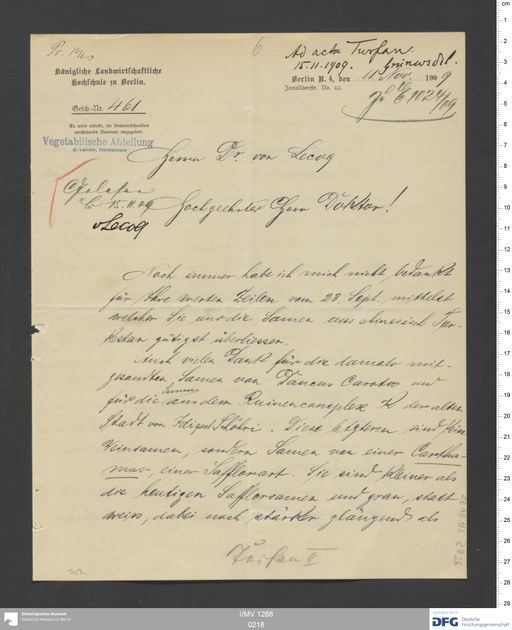 Pr. 
6
Ad acta Turfan.
15.11.1909. Grünwedel.
Königliche Landwirtschaftliche
Hochschule zu Berlin.
Berlin N. 4, den 11 Nov. 1909
Invalidenstr. No. 42.
Gesch.-Nr. 461
Es wird ersucht, im Antwortschreiben
vorstehende Nummer anzugeben.
Vegetabilische Abteilung
d. Landw. Hochschule
Herrn Dr. von Lecoq.
Gelesen
15.11.09
vLecoq
Hochgeehrter Herr Doktor!
Noch immer habe ich mich nicht bedankt
für Ihre werten Zeilen vom 23 Sept. mittelst
welcher Sie uns die Samen aus chinesisch Tur-
kestan gütigst überliessen.
Auch vielen Dank für die damals mit-
gesandten Samen von Daucus Carota und
für die aus dem Ruinencomplexe K der alten
Stadt von Idiqut Schähri. Diese letzteren sind keine
Weinsamen, sondern Samen von einer Cartha-
mus, einer Safflorart. Sie sind kleiner als
die heutigen Safflorsamen und grau, statt
weiss, dabei noch stärker glänzend als
Turfan II
Ethnologisches Museum
Staatliche Museen zu Berlin
I/MV 1268
0218
DFG Deutsche
Forschungsgemeinschaft